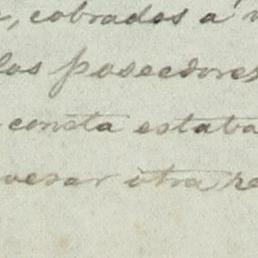 , cobrados a'
los poseedores
consta estaba
otra re